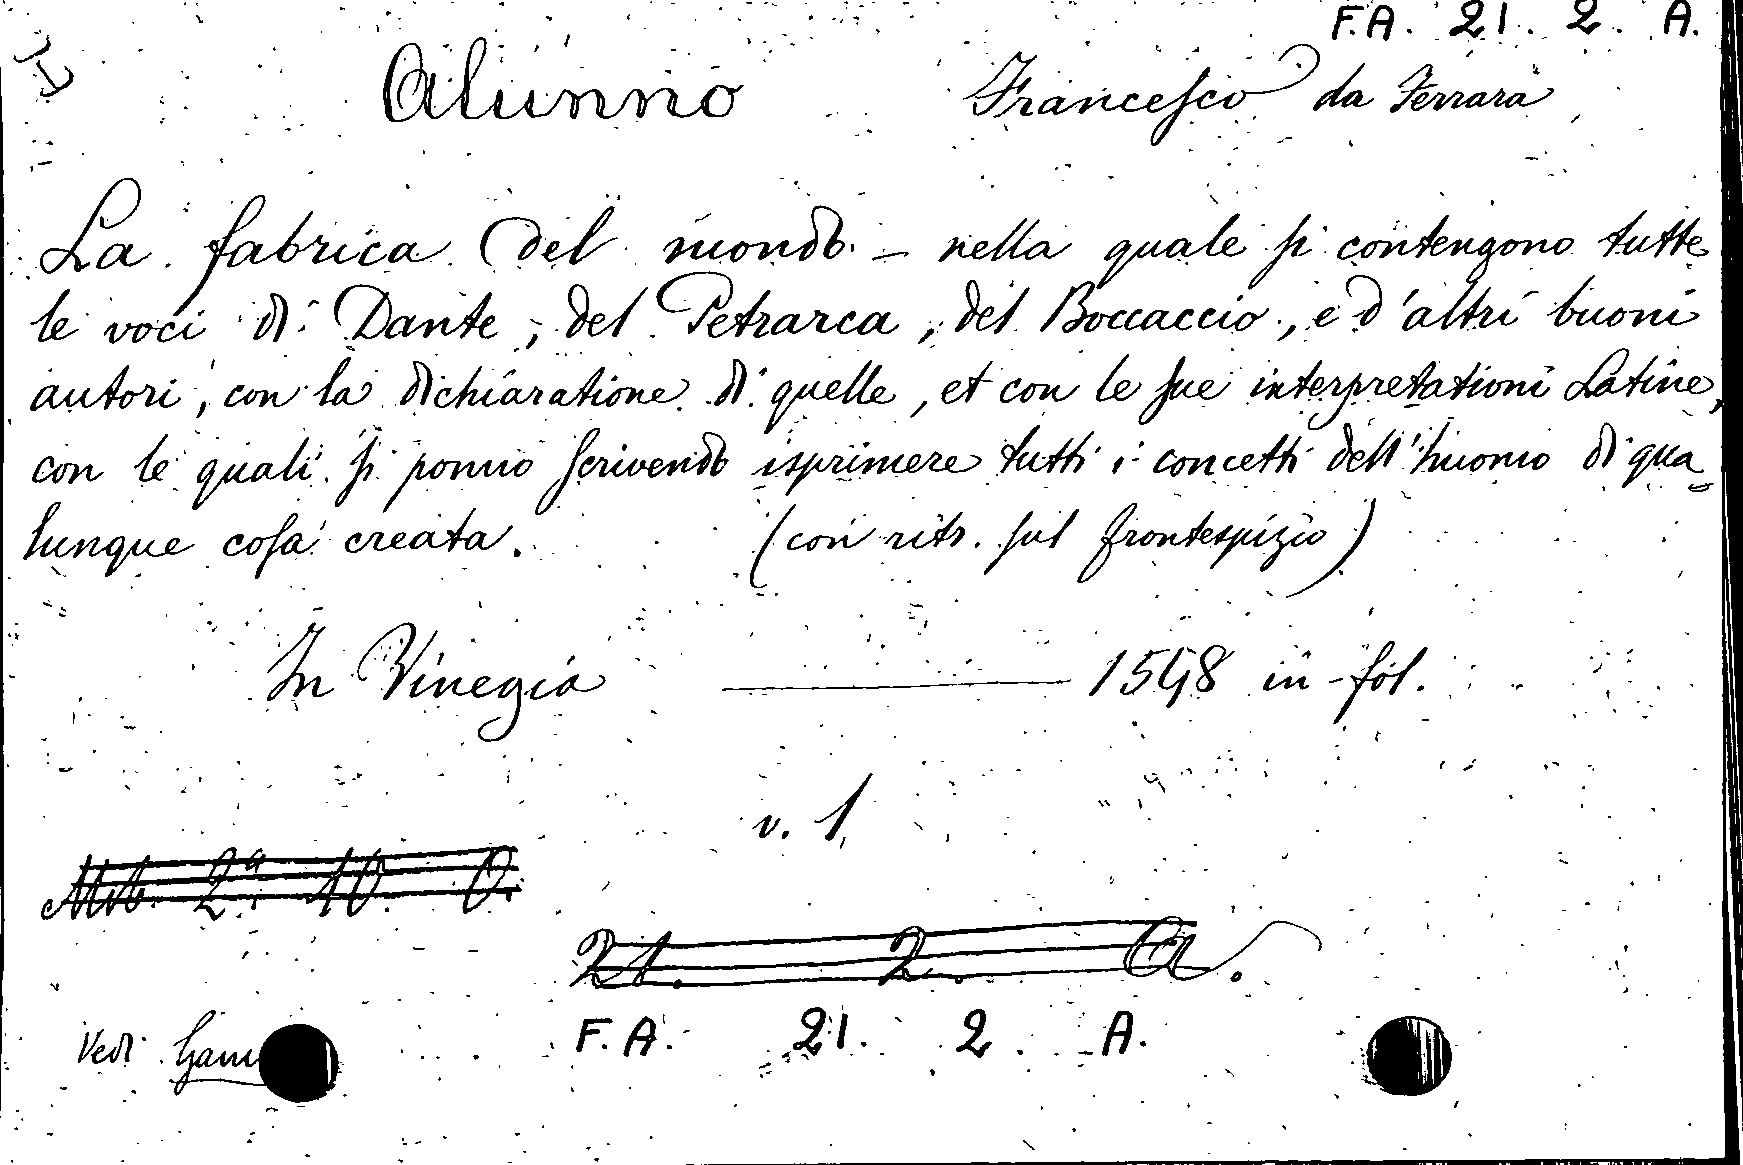 F.A. 21. 2. A.
Alunno Francesco da Ferrara
La fabrica del mondo. – nella quale si contengono tutte
le voci di Dante, del Petrarca, del Boccaccio, e d'altri buoni
autori, con la dichiaratione di quelle, et con le sue interpretationi Latine,
con le quali si ponno scrivendo isprimere tutti i concetti dell'huomo di qua
lunque cosa creata. (con ritr. sul frontespizio)
In Vinegia 1548 in-fol.
v. 1
2ª 10. O.
21. 2. A.
F.A. 21. 2. A.
Vedi